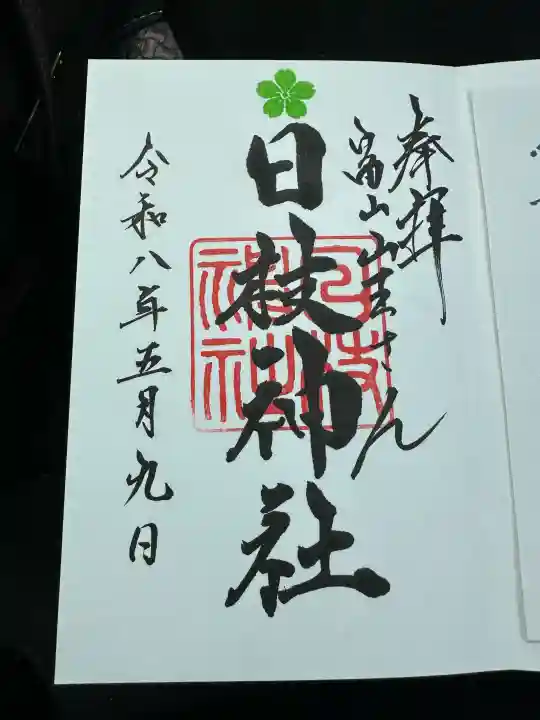 奉拝
富山山王さん
日枝神社
日枝神社
令和八年五月九日